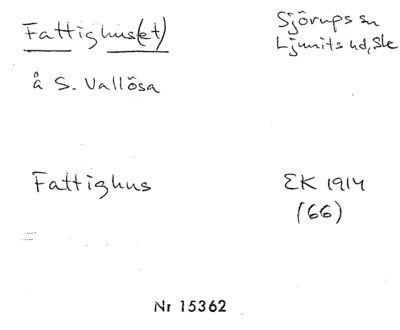 Fattighus(et)
Sjörups sn
Ljunits hd, Sk
å S. Vallösa
Fattighus
EK 1914
(66)
Nr 15362